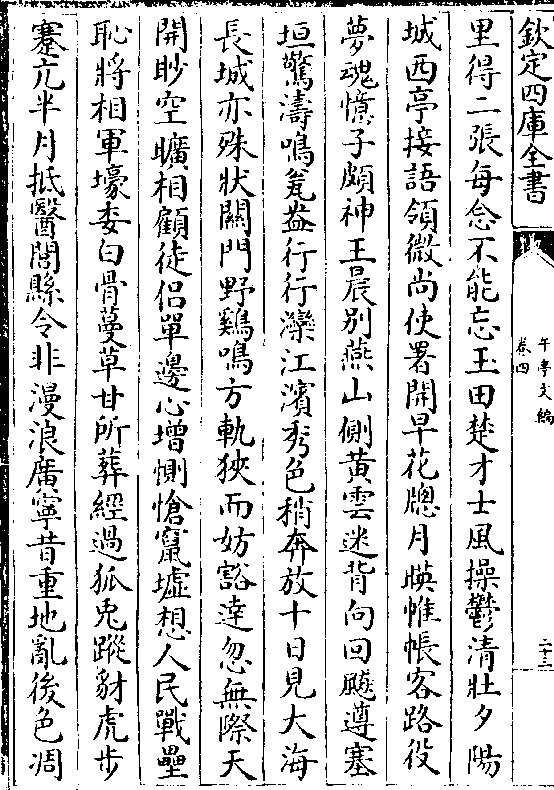 欽定四庫全書
午亭文編
卷四
二十三
里得二張每念不能忘玉田楚才士風操鬱清壯夕陽
城西亭接語領微尚使署開早花牕月暎帷帳客路役
夢魂憶子頗神王晨别燕山側黄雲迷背向回飇遵塞
垣驚濤鳴瓮盎行行灤江濱秀色稍奔放十日見大海
長城亦殊狀關門野鷄鳴方軌狹而妨豁達忽無際天
開眇空曠相顧徒侣單邊心增惻愴竄墟想人民戰壘
恥將相軍壕委白骨蔓草甘所葬經過狐兎蹤豺虎步
蹇亢半月抵醫閭縣令非漫浪廣寧昔重地亂後色凋